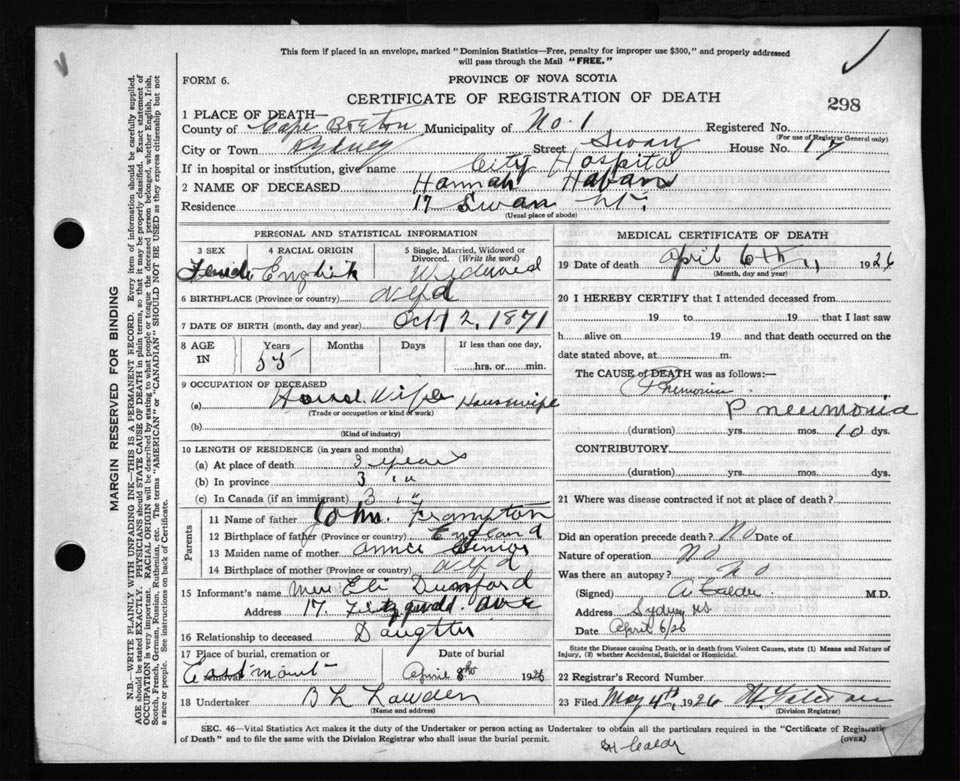 This form if placed in an envelope, marked "Dominion Statistics—Free, penalty for improper use $300," and properly addressed
will pass through the Mail "FREE."
FORM 6.
PROVINCE OF NOVA SCOTIA
CERTIFICATE OF REGISTRATION OF DEATH
298
1 PLACE OF DEATH—
County of Cape Breton Municipality of No. 1 Registered No.
(For use of Registrar General only)
City or Town Sydney Street Swan House No. 17
If in hospital or institution, give name City Hospital
2 NAME OF DECEASED Hannah
Residence 17 Swan St.
(Usual place of abode)
PERSONAL AND STATISTICAL INFORMATION
3 SEX 4 RACIAL ORIGIN 5 Single, Married, Widowed or
Divorced. (Write the word)
Female English Widowed
6 BIRTHPLACE (Province or country) Nfld
7 DATE OF BIRTH (month, day and year) Oct 12, 1871
8 AGE IN Years Months Days If less than one day,
55 hrs. or min.
9 OCCUPATION OF DECEASED
(a) House Wife Housewife
(Trade or occupation or kind of work)
(b)
(Kind of industry)
10 LENGTH OF RESIDENCE (in years and months)
(a) At place of death 3 years
(b) In province 3 "
(c) In Canada (if an immigrant) 3 "
Parents
11 Name of father John Frampton
12 Birthplace of father (Province or country) England
13 Maiden name of mother Annie Senior
14 Birthplace of mother (Province or country) Nfld
15 Informant's name Mrs Eli Dumford
Address 17 Fitzgerald Ave
16 Relationship to deceased Daughter
17 Place of burial, cremation or Date of burial
Eastmount April 8th 1926
18 Undertaker B L Lowden
(Name and address)
MEDICAL CERTIFICATE OF DEATH
19 Date of death April 6th 1926
(Month, day and year)
20 I HEREBY CERTIFY that I attended deceased from
19 to 19 that I last saw
h alive on 19 and that death occurred on the
date stated above, at m.
The CAUSE of DEATH was as follows:—
Pneumonia
Pneumonia
(duration) yrs. mos. 10 dys.
CONTRIBUTORY
(duration) yrs. mos. dys.
21 Where was disease contracted if not at place of death?
Did an operation precede death? No Date of
Nature of operation No
Was there an autopsy? No
(Signed) A Calder M.D.
Address Sydney NS
Date April 6/26
State the Disease causing Death, or in death from Violent Causes, state (1) Means and Nature of
Injury, (2) whether Accidental, Suicidal or Homicidal.
22 Registrar's Record Number
23 Filed May 4th, 1926
(Division Registrar)
SEC. 46—Vital Statistics Act makes it the duty of the Undertaker or person acting as Undertaker to obtain all the particulars required in the "Certificate of Registration
of Death" and to file the same with the Division Registrar who shall issue the burial permit.
(OVER)
MARGIN RESERVED FOR BINDING
N.B.—WRITE PLAINLY WITH UNFADING INK—THIS IS A PERMANENT RECORD. Every item of information should be carefully supplied.
AGE should be stated EXACTLY. PHYSICIANS should STATE CAUSE OF DEATH in plain terms, so that it may be properly classified. Exact statement of
OCCUPATION is very important. RACIAL ORIGIN will be described by stating to what people or tongue the deceased person belonged, whether English, Irish,
Scotch, French, German, Russian, Ruthenian, etc. The terms "AMERICAN" or "CANADIAN" SHOULD NOT BE USED as they express citizenship but not
a race or people. See instructions on back of Certificate.